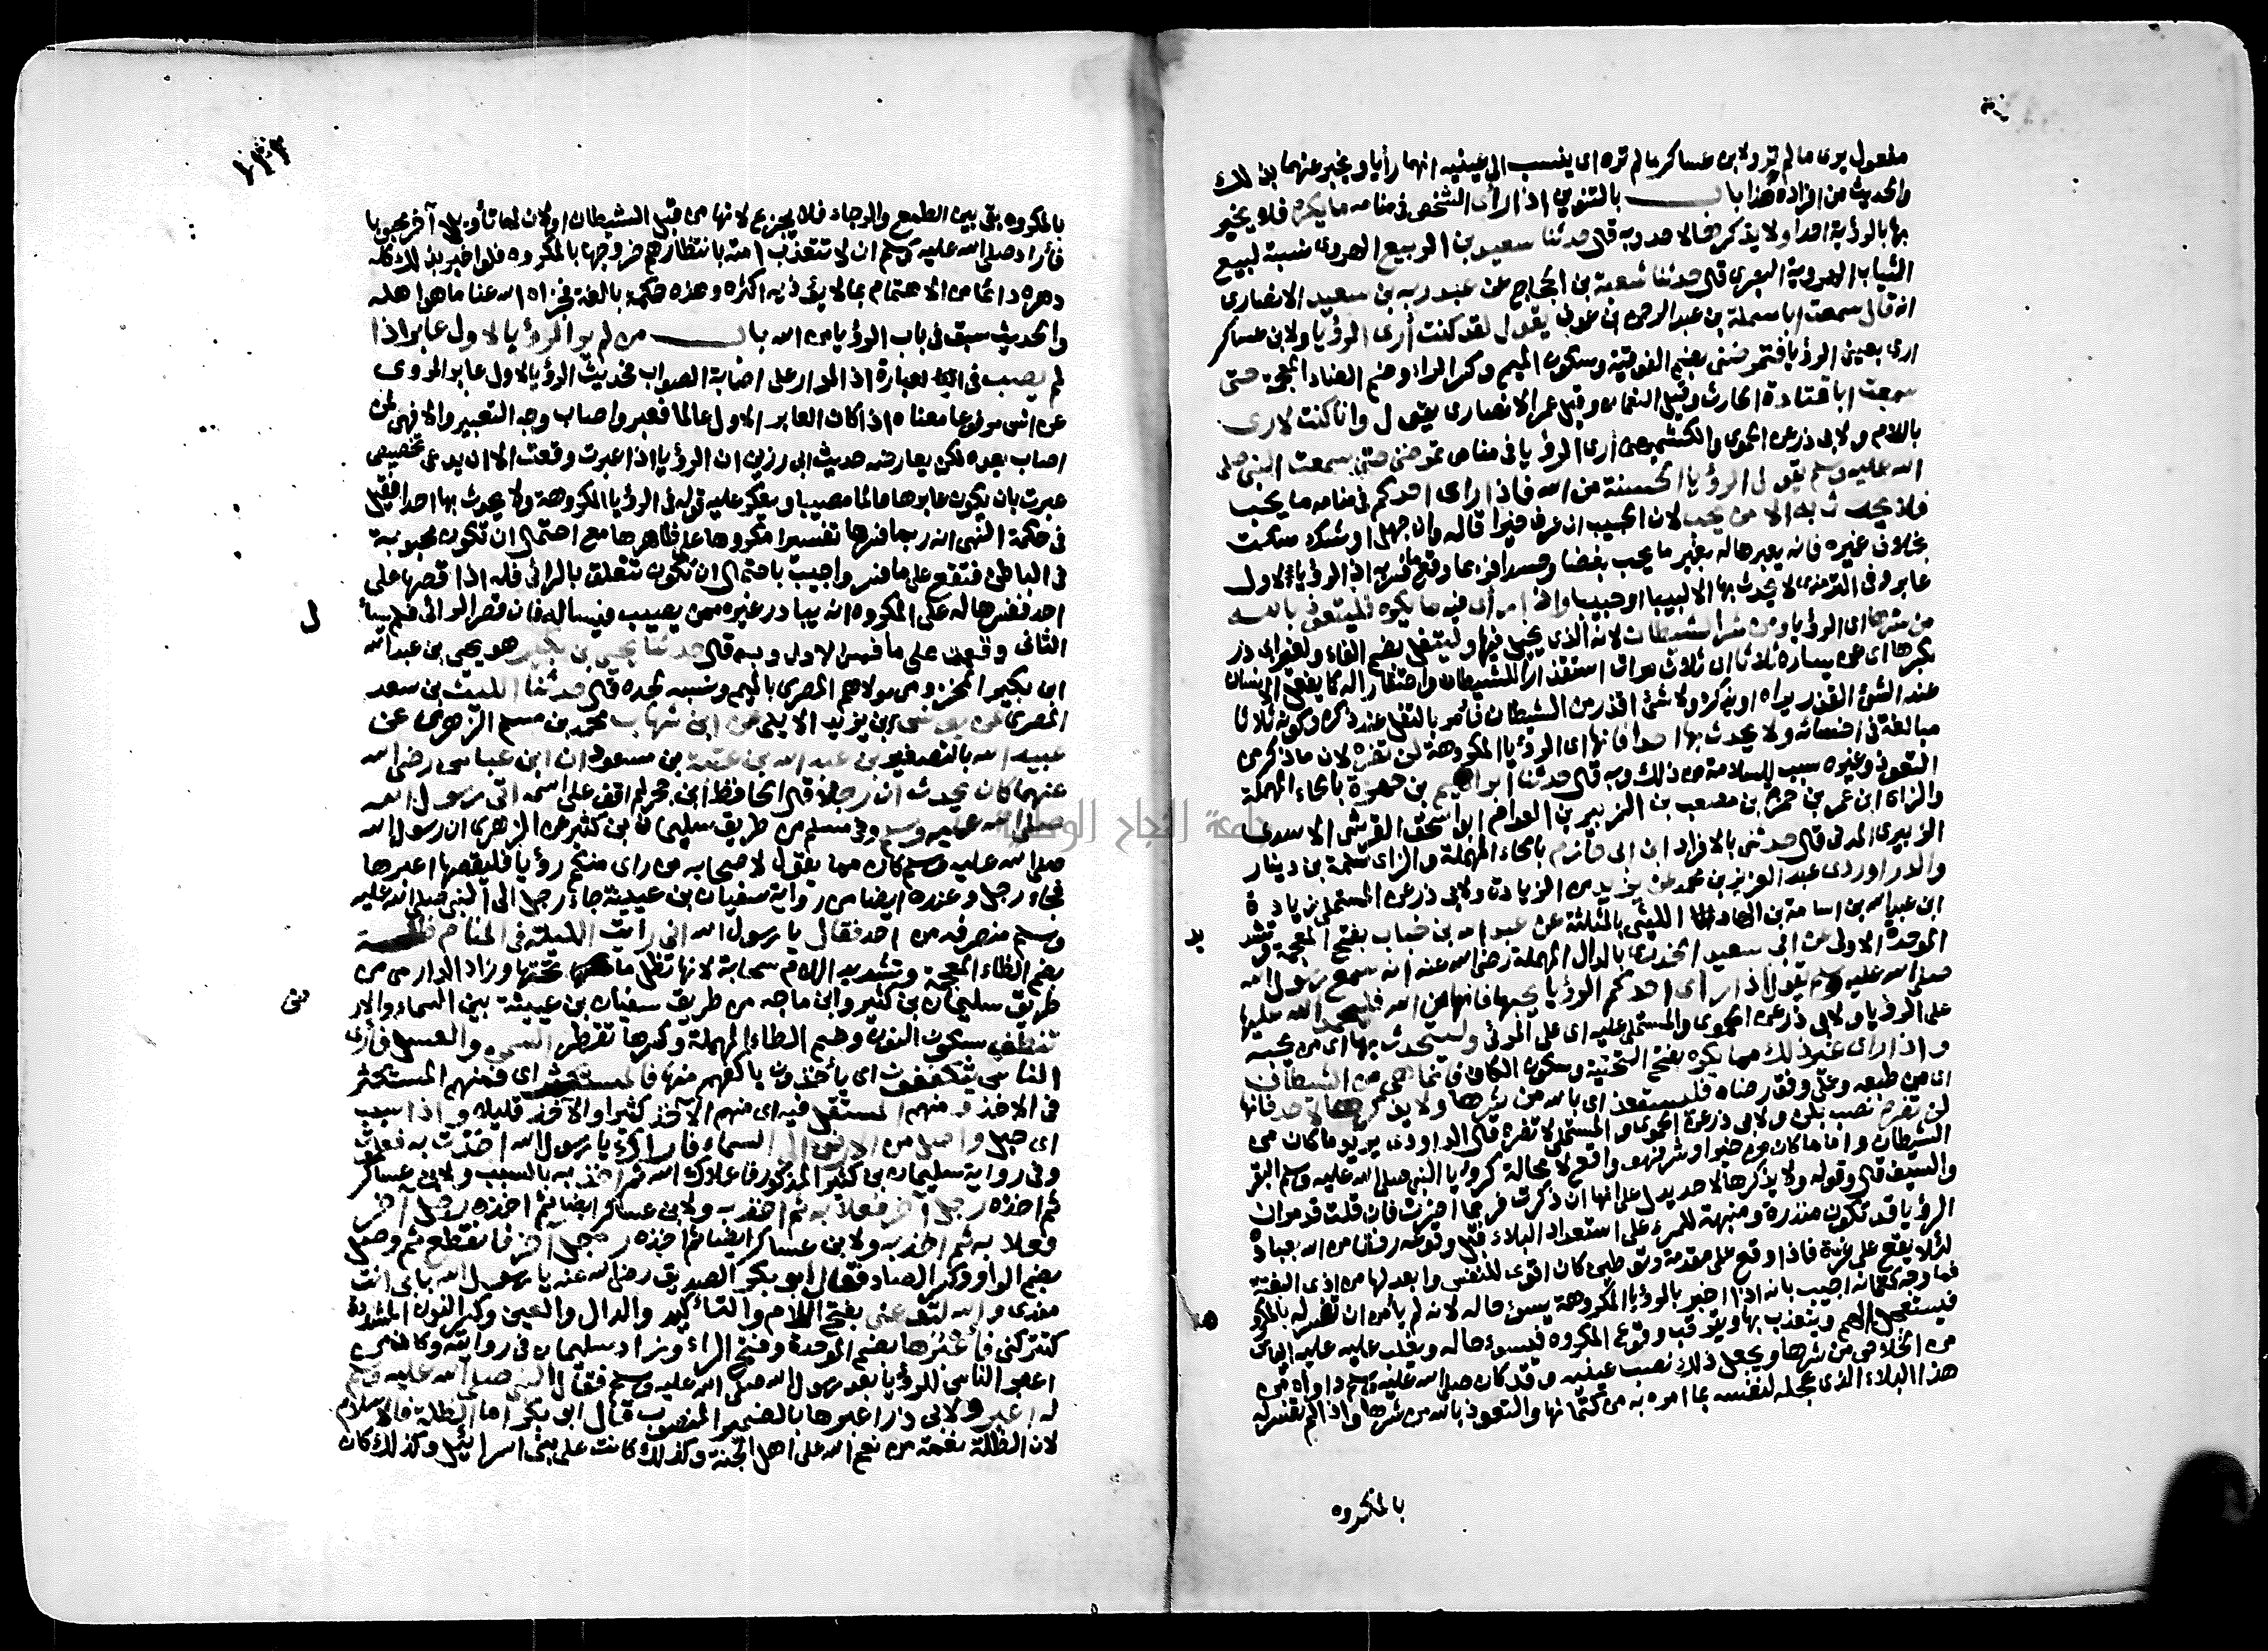 مفعول يرى ما لم تر ولابن عساكر ما لم تره اى ينسب الى عينيه انهما رأيا ويخبر عنهما بذلك
والحديث من افراده هذا باب بالتنوين اذا رأى الشخص فى منامه ما يكره فلا يخبر
بها بالرؤية احدا ولا يذكرها لاحد وبه قال حدثنا سعيد بن الربيع الهروى نسبة لبيع
الثياب الهروية البصرى قال حدثنا شعبة بن الحجاج عن عبد ربه بن سعيد الانصارى
انه قال سمعت ابا سلمة بن عبد الرحمن بن عوف يقول لقد كنت أرى الرؤيا ولابن عساكر
ارى بعينى الرؤيا فتمرضنى بضم الفوقية وسكون الميم وكسر الراء وضم الضاد المعجمة حتى
سمعت ابا قتادة الحارث وقيل النعمان وقيل عمر الانصارى يقول وانا كنت لارى
باللام ولابى ذر عن الحموى والكشميهنى ارى الرؤيا فى منامى تمرضنى حتى سمعت النبى صلى
الله عليه وسلم يقول الرؤيا الحسنة من الله فاذا راى احدكم فى منامه ما يحب
فلا يحدث به الا من يحب لان الحبيب ان عرف خيرا قاله وان جهل او شك سكت
بخلاف غيره فانه يعبرها له بغير ما يحب بغضا وحسدا فربما وقع ما فسر به اذ الرؤيا لاول
عابر وفى الترمذى لا يحدث بها الا لبيبا او حبيبا واذا رأى فيه ما يكره فليتعوذ بالله
من شرها اى الرؤيا ومن شر الشيطان لانه الذى يخيل فيها وليتفل بضم الفاء ولغير ابى ذر
بكسرها اى عن يساره ثلاثا اى ثلاث مرات استقذارا للشيطان واحتقارا له كما يفعل الانسان
عند الشئ القذر يراه او يذكره ولا شئ اقذر من الشيطان فأمر بالتفل عند ذكره وكونه ثلاثا
مبالغة فى اخسائه ولا يحدث بها احدا فانها اى الرؤيا المكروهة لن تضره لان ما ذكر من
التعوذ وغيره سبب للسلامة من ذلك وبه قال حدثنا ابراهيم بن حمزة بالحاء المهملة
والزاى ابن عمر بن حمزة بن مصعب بن الزبير بن العوام ابو اسحق القرشى الاسدى
الزبيرى المدنى قال حدثنى بالافراد ابن ابى حازم بالحاء المهملة والزاى سلمة بن دينار
والدراوردى عبد العزيز بن محمد عن يزيد من الزيادة ولابى ذر عن المستملى زيادة
ابن عبد الله بن اسامة بن الهاد الليثى بالمثلثة عن عبد الله بن خباب بفتح المعجمة وتشد
يد
الموحدة الاولى عن ابى سعيد الخدرى بالدال المهملة رضى الله عنه انه سمع رسول الله
صلى الله عليه وسلم يقول اذا رأى احدكم الرؤيا يحبها فانها من الله فليحمد الله عليها
على الرؤيا ولابى ذر عن الحموى والمستملى عليه اى على المرئى وليتحدث بها اى من يحبه
واذا راى غير ذلك مما يكره بفتح التحتية وسكون الكاف فانما هى من الشيطان
اى من طبعه وعلى وفق رضاه فليستعذ اى بالله من شرها ولا يذكرها لاحد فانها
لن تضره نصب بلن ولابى ذر عن الحموى والمستملى لا تضره قال الداودى يريد ما كان من
الشيطان واما ما كان من خير او شر فهو واقع لا محالة كرؤيا النبى صلى الله عليه وسلم البقر
والسيف قال وقوله ولا يذكرها لاحد يدل على انها ان ذكرت فربما اضرت فان قلت قد مر ان
الرؤيا قد تكون منذرة ومنبهة للمرء على استعداد البلاء قبل وقوعه رفقا من الله بعباده
لئلا يقع على غرة فاذا وقع على مقدمة وتوطين كان اقوى للنفس وابعد لها من اذى البغتة
فما وجه كتمانه اجيب بانه اذا اخبر بالرؤيا المكروهة يسوئ حاله لانه لم يأمن ان تفسر له بالمكرو
ه
فيستعجل الهم ويتعذب بها ويترقب وقوع المكروه فيسوء حاله ويغلب عليه اليأس
من الخلاص من شرها ويجعل ذلك نصب عينيه وقد كان صلى الله عليه وسلم داواه من
هذا البلاء الذى عجله لنفسه بما امره به من كتمانها والتعوذ بالله من شرها واذا لم تفسر له
بالمكروه
بالمكروه بقى بين الطمع والرجاء فلا يجزع لانها من قبل الشيطان او لان لها تأويل آخر محبوبا
فأراد صلى الله عليه وسلم ان لا تتعذب امته بانتظارهم خروجها بالمكروه فلو اخبر بذلك كله
دهره دائما من الاهتمام بما لا يؤذيه اكثره وهذه حكمة بالغة فجزاه الله عنا ما هو اهله
والحديث سبق فى باب الرؤيا من الله باب من لم ير الرؤيا لاول عابر اذا
لم يصب فى العبارة اذ المدار على اصابة الصواب فحديث الرؤيا لاول عابر المروى
عن انس مرفوعا معناه اذا كان العابر الاول عالما فعبر واصاب وجه التعبير والا فهى لمن
اصاب بعده لكن يعارضه حديث ابى رزين ان الرؤيا اذا عبرت وقعت الا ان يدعى تخصيص
عبرت بان يكون عابرها عالما مصيبا ويعكر عليه قوله فى الرؤيا المكروهة ولا يحدث بها احدا فقيل
فى حكمة النهى انه ربما فسرها تفسيرا مكروها على ظاهرها مع احتمال ان تكون محبوبة
فى الباطن فتقع على ما فسر واجيب باحتمال ان تكون تتعلق بالرائى فله اذا قصها على
احد ففسرها له على المكروه انه يبادر غيره ممن يصيب فيساله فان قصر الرائى فلم يسأ
ل
الثانى وقعت على ما فسر الاول وبه قال حدثنا يحيى بن بكير هو يحيى بن عبد الله
ابن بكير المخزومى مولاهم المصرى بالميم ونسبه لجده قال حدثنا الليث بن سعد
المصرى عن يونس ابن يزيد الايلى عن ابن شهاب محمد بن مسلم الزهرى عن
عبيد الله بالتصغير بن عبد الله بن عتبة بن مسعود ان ابن عباس رضى الله
عنهما كان يحدث ان رجلا قال الحافظ ابن حجر لم اقف على اسمه اتى رسول الله
صلى الله عليه وسلم وفى مسلم من طريق سليمان بن كثير عن الزهرى ان رسول الله
صلى الله عليه وسلم كان مما يقول لاصحابه من راى منكم رؤيا فليقصها اعبرها
فجاء رجل وعنده ايضا من رواية سفيان بن عيينة جاء رجل الى النبى صلى الله عليه
وسلم منصرفه من احد فقال يا رسول الله انى رأيت الليلة فى المنام ظلة
بضم الظاء المعجمة وتشديد اللام سحابة لانها تظل ما تحتها وزاد الدارمى من
طريق سليمان بن كثير وابن ماجه من طريق سفيان بن عيينة بين السماء والار
ض
تنطف بسكون النون وضم الطاء المهملة وكسرها تقطر السمن والعسل فأرى
الناس يتكففون اى يأخذون باكفهم منها فالمستكثر اى فمنهم المستكثر
فى الاخذ ومنهم المستقل فيه اى منهم الآخذ كثيرا والآخذ قليلا واذا سبب
اى حبل واصل من الارض الى السماء فاراك يا رسول الله اخذت به فعلوت
وفى رواية سليمان بن كثير المذكور فاعلاك الله ثم اخذ به بالسبب ولابن عساكر
ثم اخذه رجل آخر فعلا به ثم اخذ به ولابن عساكر ايضا ثم اخذه رجل آخر
فعلا به ثم اخذ به ولابن عساكر ايضا ثم اخذه رجل آخر فانقطع ثم وصل
بضم الواو وكسر الصاد فقال ابو بكر الصديق رضى الله عنه يا رسول الله بابى انت
مفدى والله لتدعنى بفتح اللام والتاكيد والدال والعين وكسر النون المشددة
لتتركنى فأعبرها بضم الموحدة وفتح الراء وزاد سليمان فى روايته وكان من
اعبر الناس للرؤيا بعد رسول الله صلى الله عليه وسلم فقال النبى صلى الله عليه وسلم
له اعبر ولابى ذر اعبرها بالضمير المنصوب قال ابو بكر اما الظلة فالاسلام
لان الظلة نعمة من نعم الله على اهل الجنة وكذلك كانت على بنى اسرائيل وكذلك كان
جامعة النجاح الوطنية